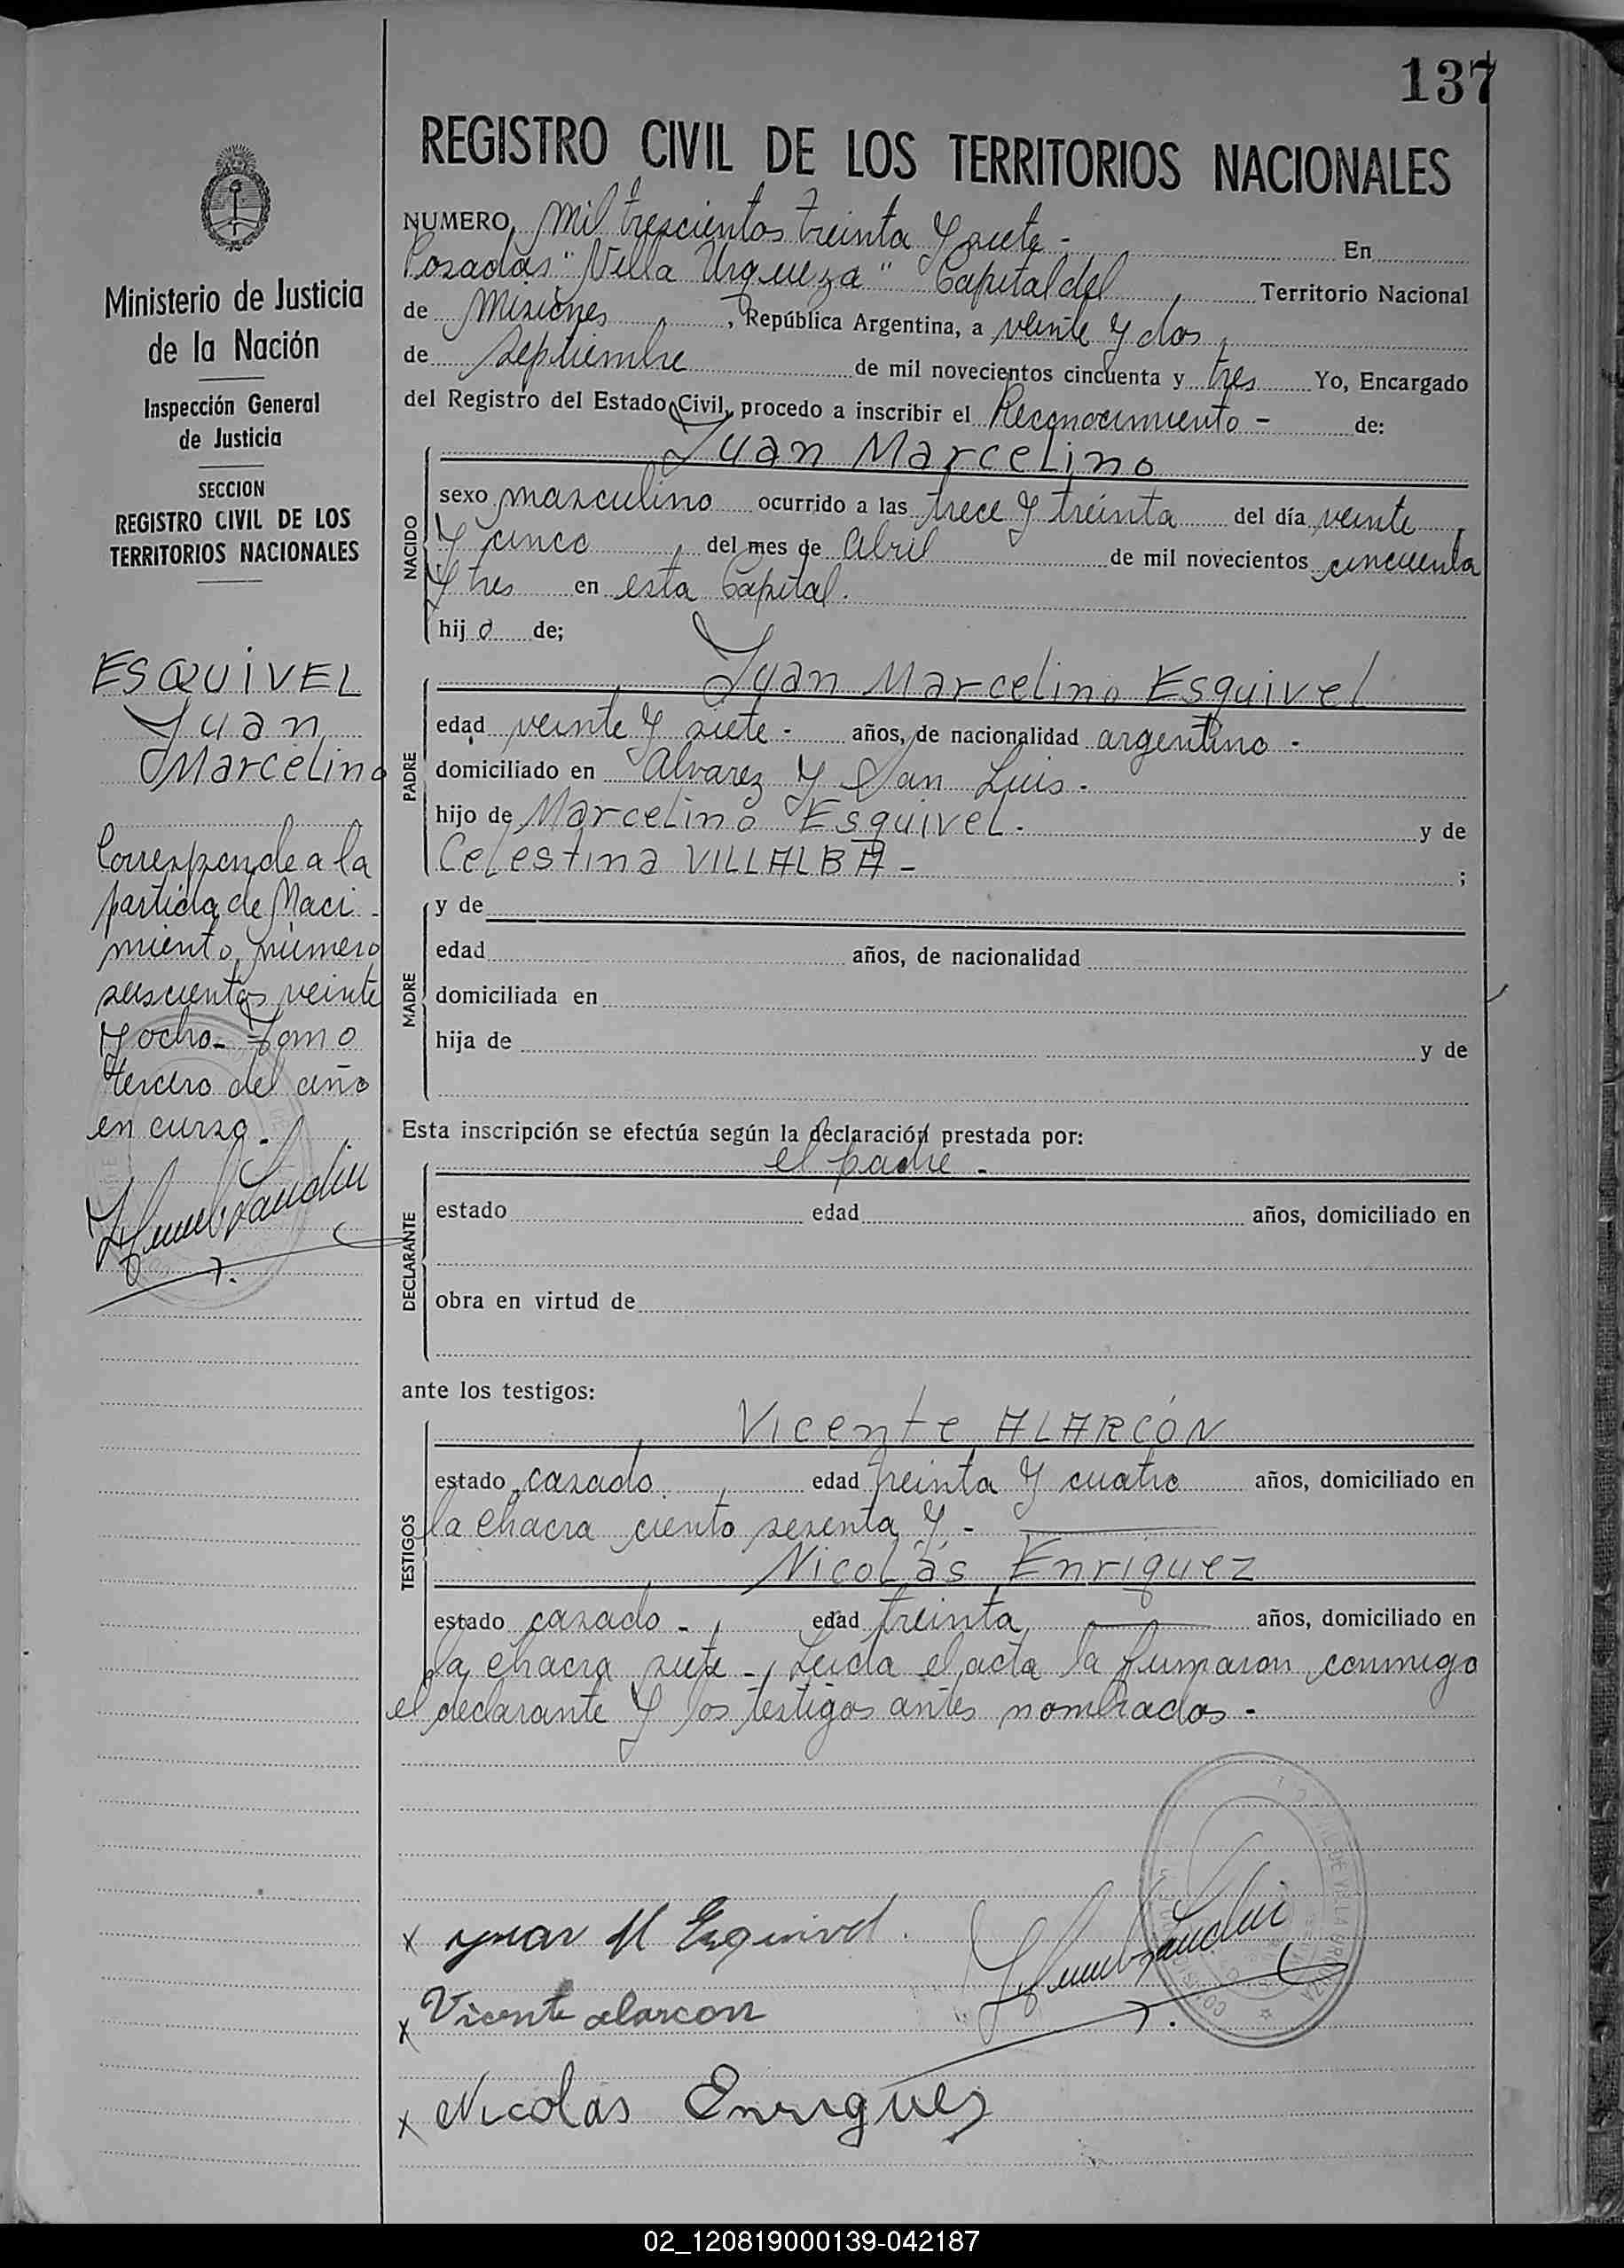 137
REGISTRO CIVIL DE LOS TERRITORIOS NACIONALES
NUMERO, mil trescientos treinta y siete - En
Posadas "Villa Urquiza" Capital del Territorio Nacional
de Misiones, República Argentina, a veinte y dos
de septiembre de mil novecientos cincuenta y tres Yo, Encargado
del Registro del Estado Civil, procedo a inscribir el Reconocimiento - de:
NACIDO
Juan Marcelino
sexo masculino ocurrido a las trece y treinta del día veinte
y cinco del mes de Abril de mil novecientos cincuenta
y tres en esta Capital.
hijo de;
PADRE
Juan Marcelino Esquivel
edad veinte y siete - años, de nacionalidad argentino -
domiciliado en Alvarez y San Luis -
hijo de Marcelino Esquivel - y de
Celestina VILLALBA - ;
MADRE
y de
edad años, de nacionalidad
domiciliada en
hija de y de
Esta inscripción se efectúa según la declaración prestada por:
DECLARANTE
el padre -
estado edad años, domiciliado en
obra en virtud de
ante los testigos:
TESTIGOS
Vicente ALARCÓN
estado casado. edad treinta y cuatro años, domiciliado en
la chacra ciento sesenta y -
Nicolás Enriquez
estado casado - edad treinta años, domiciliado en
la chacra siete - Leida el acta la firmaron conmigo
el declarante y los testigos antes nombrados -
x Juan M Esquivel.
x Vicente alarcon
x Nicolas Enriquez
Ministerio de Justicia
de la Nación
Inspección General
de Justicia
SECCION
REGISTRO CIVIL DE LOS
TERRITORIOS NACIONALES
ESQUIVEL
Juan
Marcelino
Corresponde a la
partida de Naci-
miento, número
seiscientos veinte
y ocho - Tomo
tercero del año
en curso -
02_120819000139-042187